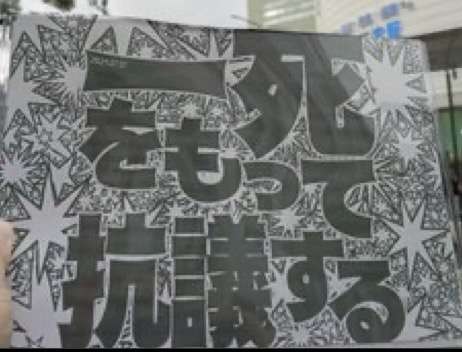 一死
をもって
抗議する